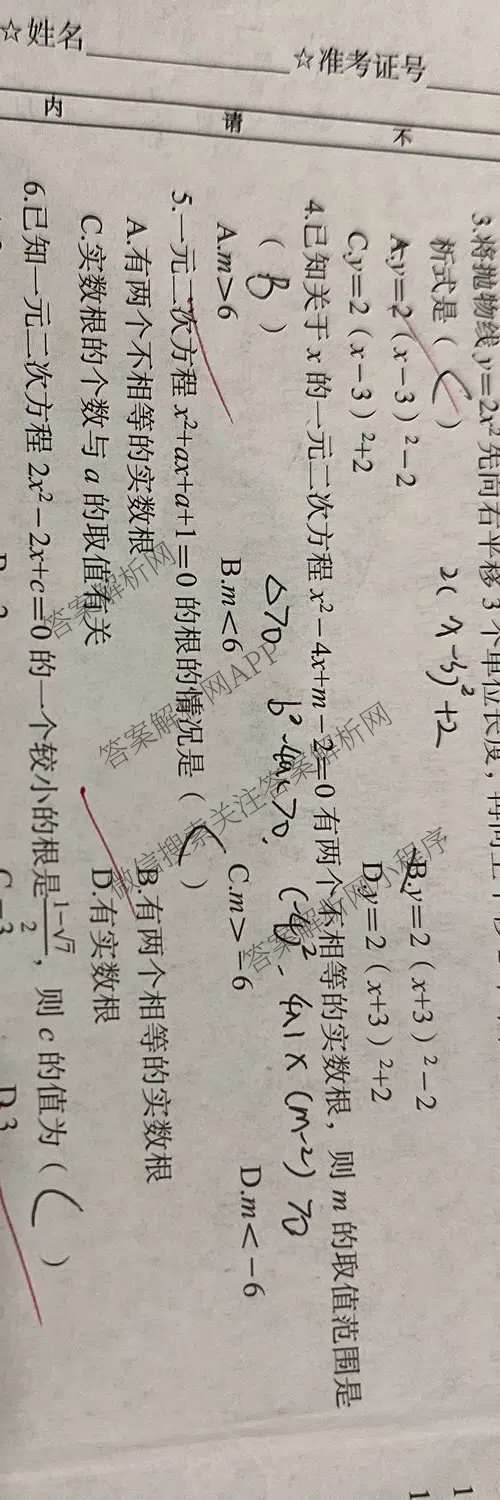 ☆姓名
☆准考证号
内 请 不
3.将抛物线y=2x²先向右平移3个单位长度,
析式是( C )
2(x-3)²+2
A.y=2(x-3)²-2 B.y=2(x+3)²-2
C.y=2(x-3)²+2 D.y=2(x+3)²+2
4.已知关于x的一元二次方程x²-4x+m-2=0有两个不相等的实数根,则m的取值范围是
( B )
Δ>0 b²-4ac>0. (-4)²-4×1×(m-2)>0
A.m>6 B.m<6 C.m>-6 D.m<-6
5.一元二次方程x²+ax+a+1=0的根的情况是( C )
A.有两个不相等的实数根 B.有两个相等的实数根
C.实数根的个数与a的取值有关 D.有实数根
6.已知一元二次方程2x²-2x+c=0的一个较小的根是(1-√7)/2,则c的值为( C )
D.3
答案解析网
答案解析网APP
微信搜索关注答案解析网
答案解析网小程序